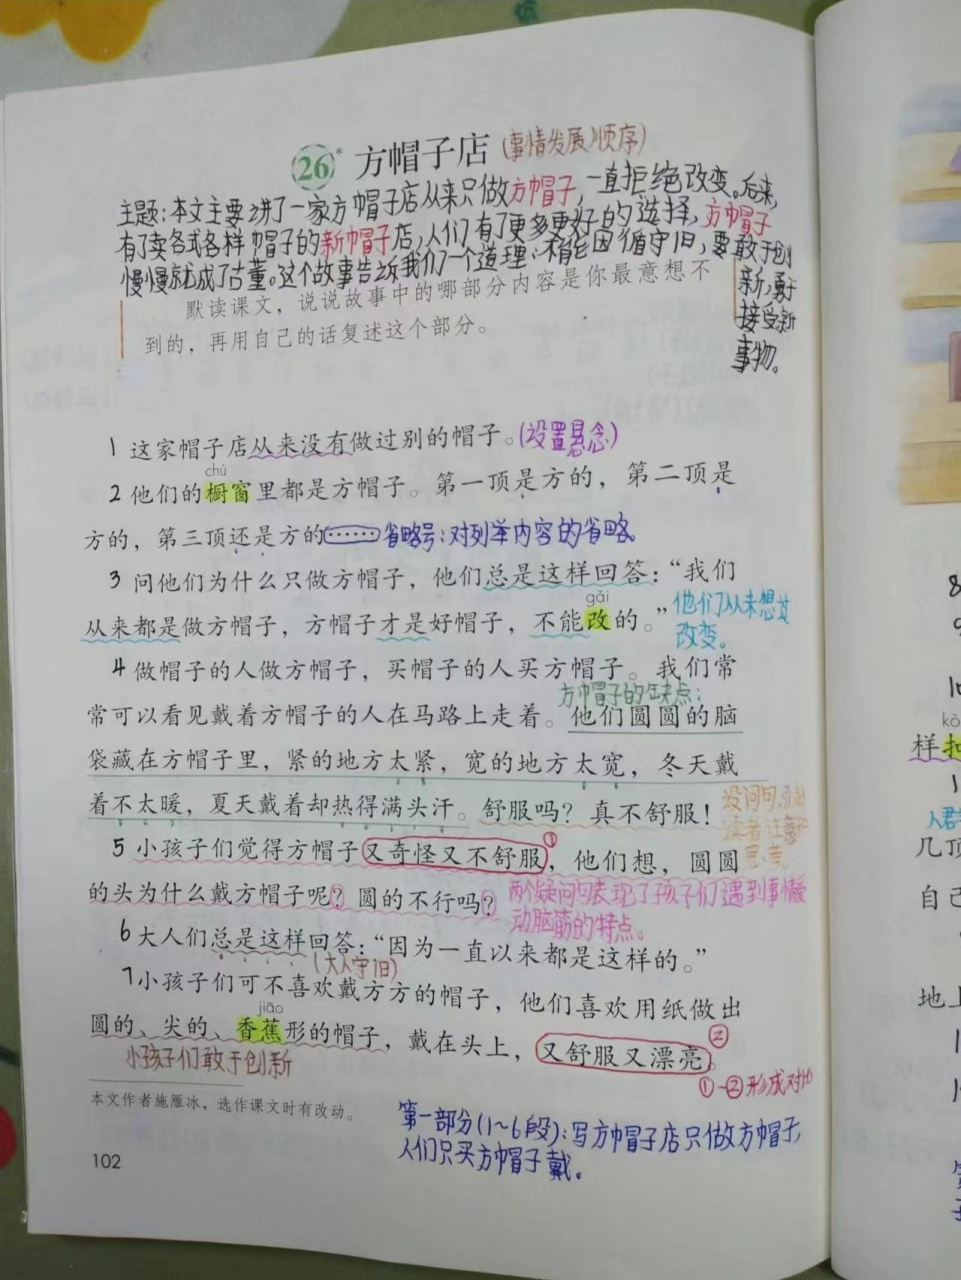 26* 方帽子店 (事情发展顺序)
主题:本文主要讲了一家方帽子店从来只做方帽子,一直拒绝改变。后来,
有了卖各式各样帽子的新帽子店,人们有了更多更好的选择,方帽子
慢慢就成了古董。这个故事告诉我们一个道理:不能因循守旧,要敢于创
新,勇于
接受新
事物。
默读课文,说说故事中的哪部分内容是你最意想不
到的,再用自己的话复述这个部分。
1 这家帽子店从来没有做过别的帽子。(设置悬念)
chú
2 他们的橱窗里都是方帽子。第一顶是方的,第二顶是
方的,第三顶还是方的…… 省略号:对列举内容的省略
3 问他们为什么只做方帽子,他们总是这样回答:“我们
gǎi
从来都是做方帽子,方帽子才是好帽子,不能改的。”
他们从未想过
改变。
4 做帽子的人做方帽子,买帽子的人买方帽子。我们常
方帽子的缺点:
常可以看见戴着方帽子的人在马路上走着。他们圆圆的脑
袋藏在方帽子里,紧的地方太紧,宽的地方太宽,冬天戴
着不太暖,夏天戴着却热得满头汗。舒服吗?真不舒服!
设问句,引起
读者注意和
思考。
5 小孩子们觉得方帽子又奇怪又不舒服①,他们想,圆圆
的头为什么戴方帽子呢?圆的不行吗?
两个疑问句表现了孩子们遇到事情爱
动脑筋的特点。
6 大人们总是这样回答:“因为一直以来都是这样的。”
(大人守旧)
7 小孩子们可不喜欢戴方方的帽子,他们喜欢用纸做出
jiāo
圆的、尖的、香蕉形的帽子,戴在头上,又舒服又漂亮。②
小孩子们敢于创新
①-②形成对比
本文作者施雁冰,选作课文时有改动。
第一部分(1~6段):写方帽子店只做方帽子,
人们只买方帽子戴。
102
8
9
10
kò
样扣
1
人群
几顶
自己
地上